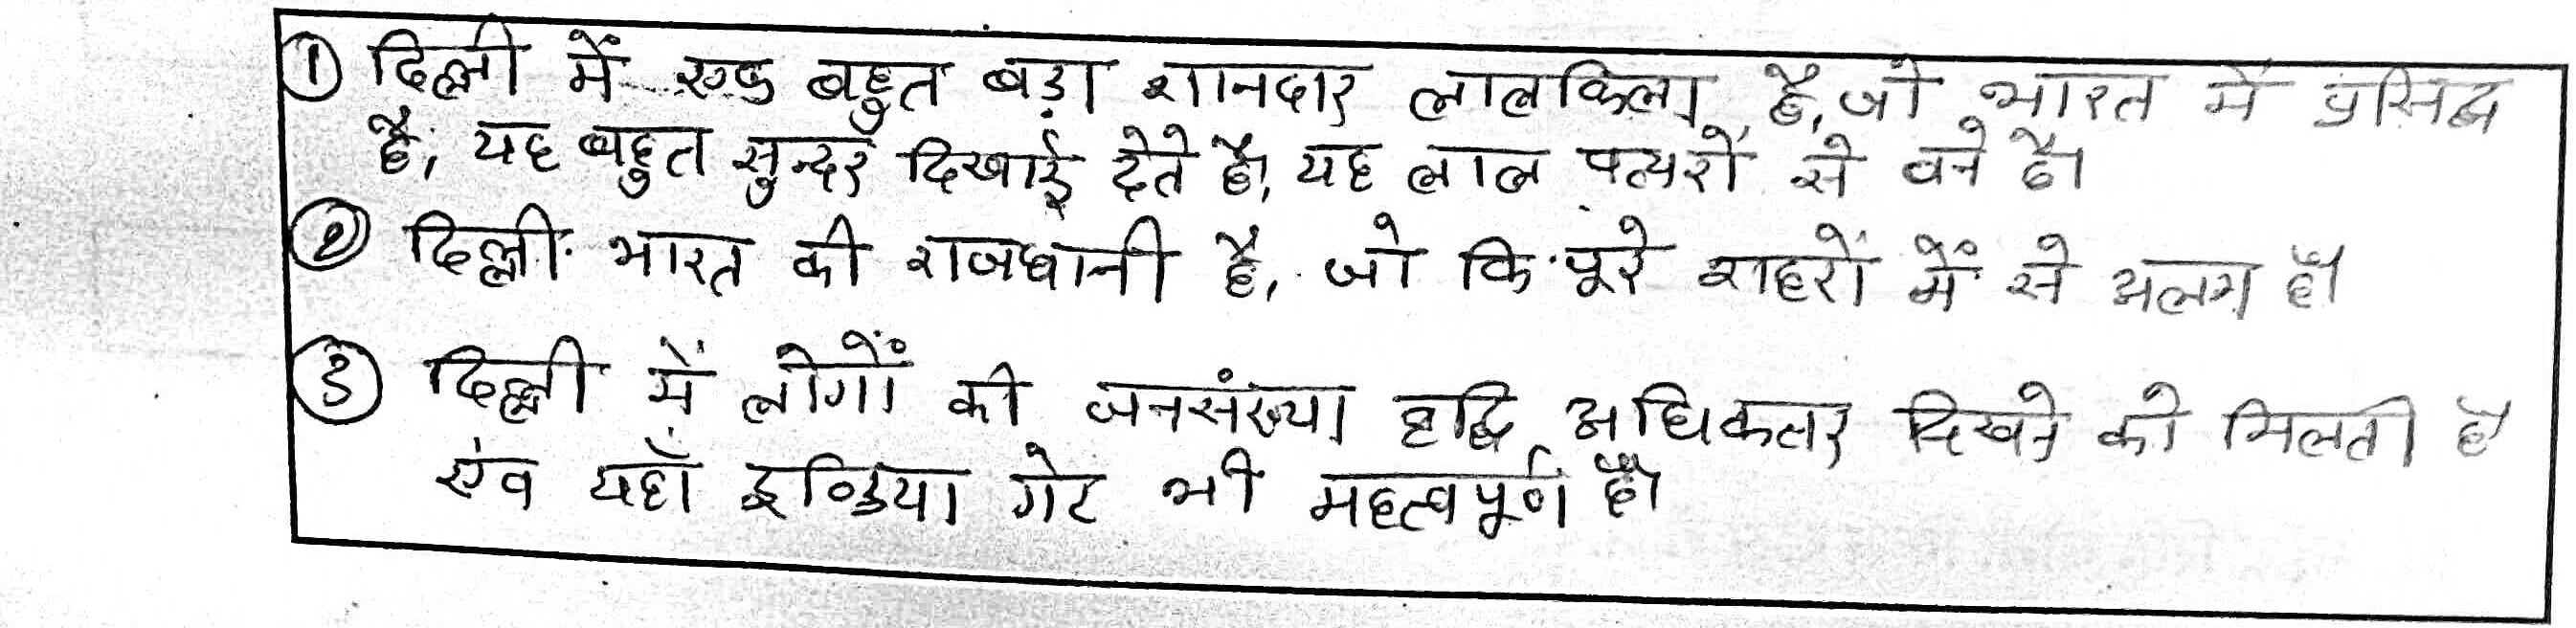 ① दिल्ली में एक बहुत बड़ा शानदार लालकिला है, जो भारत में प्रसिद्ध
है, यह बहुत सुन्दर दिखाई देते है, यह लाल पत्थरों से बने है।
② दिल्ली भारत की राजधानी है, जो कि पूरे शहरों में से अलग है।
③ दिल्ली में लोगों की जनसंख्या वृद्धि अधिकतर दिखने को मिलती है
एंव यहाँ इण्डिया गेट भी महत्वपूर्ण है।